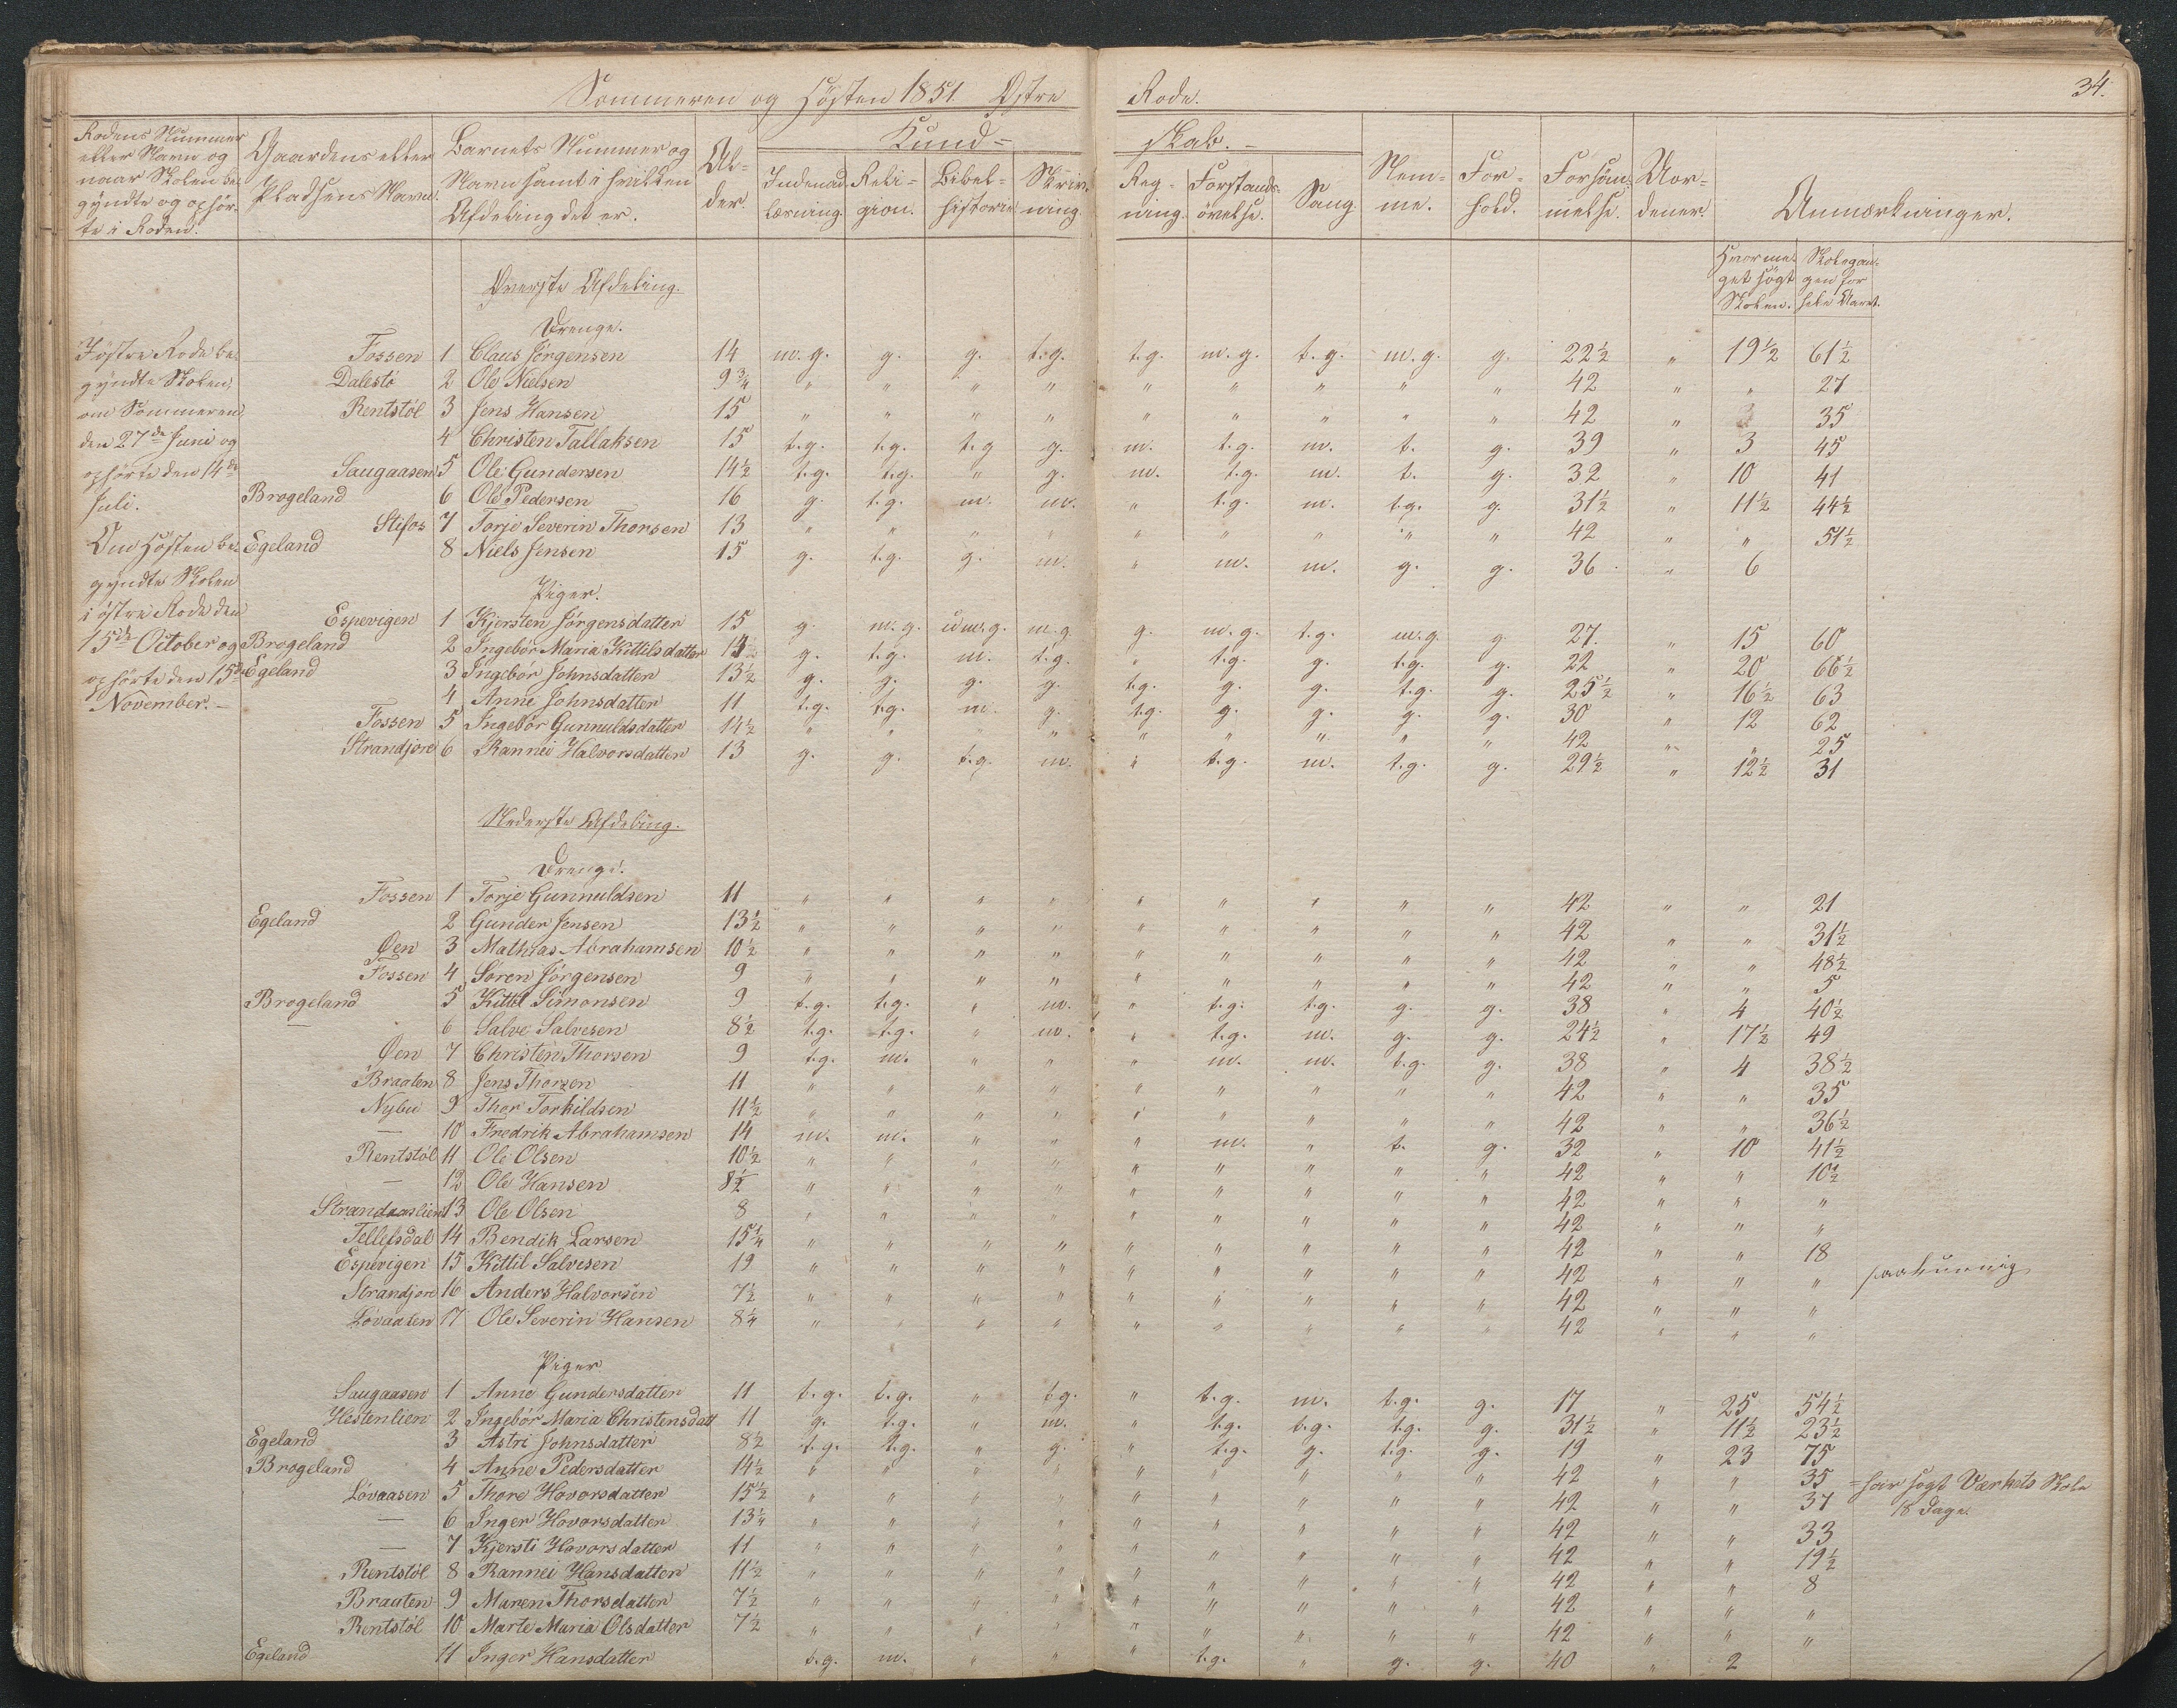 34.
Sommeren og Høsten 1851. Østre Rode.
Rodens Nummer eller Navn og naar Skolen begyndte og ophørte i Roden.
Gaardens eller Pladsens Navn.
Barnets Nummer og Navn samt i hvilken Afdeling det er.
Alder.
Kundskab.
Indenadlæsning. Religion. Bibelhistorie Skrivning. Regning. Forstandsøvelse. Sang
Nemme. Forhold. Forsømmelse. Uordener. Anmærkninger.
Hvormeget søgt Skolen. Skolegangen for hele Aaret.
Øverste Afdeling.
Drenge.
I østre Rode be-
gyndte Skolen,
om Sommeren,
den 27de Juni og
ophørte den 14de
Juli.
Om Høsten be-
gyndte Skolen
i østre Rode den
15de October og
ophørte den 15de
November. -
Fossen 1 Claus Jörgensen 14 m.g. g. g. t.g. t.g. m.g. t.g. m.g. g. 22½ " 19½ 61½
Dalestö 2 Ole Nielsen 9¾ " " " " " " " " " 42 " " 27
Rentstöl 3 Jens Hansen 15 " " " " " " " " " 42 " 35
4 Christen Tallaksen 15 t.g. t.g. t.g g. m. t.g. m. t. g. 39 " 3 45
Saugaasen 5 Ole Gundersen 14½ t.g. t.g. " g. m. t.g. m. t. g. 32 " 10 41
Brogeland 6 Ole Pedersen 16 g. t.g. m. m. " t.g. m. t.g. g. 31½ " 11½ 44½
Stifos 7 Torje Severin Thorsen 13 " " " " " " " " " 42 " " 51½
Egeland 8 Niels Jensen 15 g. t.g. g. m. " m. m. g. g. 36 " 6
Piger.
Espevigen 1 Kjersten Jörgensdatter 15 g. m.g. m.g. g. m.g. t.g. m.g. g. 27. " 15 60
Brogeland 2 Ingebor Maria Kittilsdatter g. t.g. m. t.g. " t.g. g. t.g. g. 22 " 20 66½
Egeland 3 Ingebor Johnsdatter 13½ g. g. g. g. t.g. g. g. t.g. g. 25½ " 16½ 63
4 Anne Johnsdatter 11 t.g. t.g. m. g. t.g. g. g. g. g. 30 " 12 62
Fossen 5 Ingebör Gunnuldsdatter 14½ " " " " " " " " " 42 " " 25
Strandjore 6 Rannei Halvorsdatter 13 g. g. t.g. m. " t.g. m. t.g. g. 29½ " 12½ 31
Nederste Afdeling.
Drenge.
Fossen 1 Torje Gunnuldsen 11 " " " " " " " " " 42 " " 21
Egeland 2 Gunder Jensen 13½ " " " " " " " " " 42 " " 31½
Øen 3 Mathias Abrahamsen 10½ " " " " " " " " " 42 " " 48½
Fossen 4 Sören Jörgensen 9 " " " " " " " " " 42 " " 5
Brogeland 5 Kittil Simonsen 9 t.g. t.g. " m. " t.g. t.g. g. g. 38 " 4 40½
— 6 Salve Salvesen 8½ t.g. t.g. " m. " t.g. m. g. g. 24½ " 17½ 49
Øen 7 Christen Thorsen 9 t.g. m. " " " m. m. t.g. g. 38 " 4 38½
Braaten 8 Jens Thorsen 11 " " " " " " " " " 42 " " 35
Nybu 9 Thor Torkildsen 11½ " " " " " " " " " 42 " " 36½
— 10 Fredrik Abrahamsen 14 m. m. " " " m. " t. g. 32 " 10 41½
Rentstöl 11 Ole Olsen 10½ " " " " " " " " " 42 " " 10½
— 12 Ole Hansen 8½ " " " " " " " " " 42 " " "
Strandaaslien 13 Ole Olsen 8 " " " " " " " " " 42 " " "
Tellefsdal 14 Bendik Larsen 15¼ " " " " " " " " " 42 " " 18
Espevigen 15 Kittil Salvesen 19 " " " " " " " " " 42 " " "
Strandjore 16 Anders Halvorsen 7½ " " " " " " " " " 42 " " "
Lövaasen 17 Ole Severin Hansen 8¼ " " " " " " " " " 42 " " "
Piger
Saugaasen 1 Anne Gundersdatter 11 t.g. t.g. " t.g. " t.g. m. t.g. g. 17 " 25 54½
Hestenlien 2 Ingebör Maria Christensdatt 11 g. t.g. " m. " t.g. t.g. t.g. g. 31½ " 11½ 23½
Egeland 3 Astri Johnsdatter 8½ t.g. t.g. " g. " t.g. g. t.g. g. 19 " 23 75
Brogeland 4 Anne Pedersdatter 14½ " " " " " " " " " 42 " " 35 = har søgt Værkets Skole 18 Dage.
Lövaasen 5 Thore Hovorsdatter 15½ " " " " " " " " " 42 " " 37
— 6 Inger Hovorsdatter 13¼ " " " " " " " " " 42 " " 33
— 7 Kjersti Hovorsdatter 11 " " " " " " " " " 42 " " 19½
Rentstöl 8 Rannei Hansdatter 11½ " " " " " " " " " 42 " " 8
Brauten 9 Maren Thorsdatter 7½ " " " " " " " " " 42 " " "
Rentstöl 10 Marte Maria Olsdatter 7½ " " " " " " " " " 42 " " "
Egeland 11 Inger Hansdatter t.g. m. " " " t.g. " g. g. 40 " 2